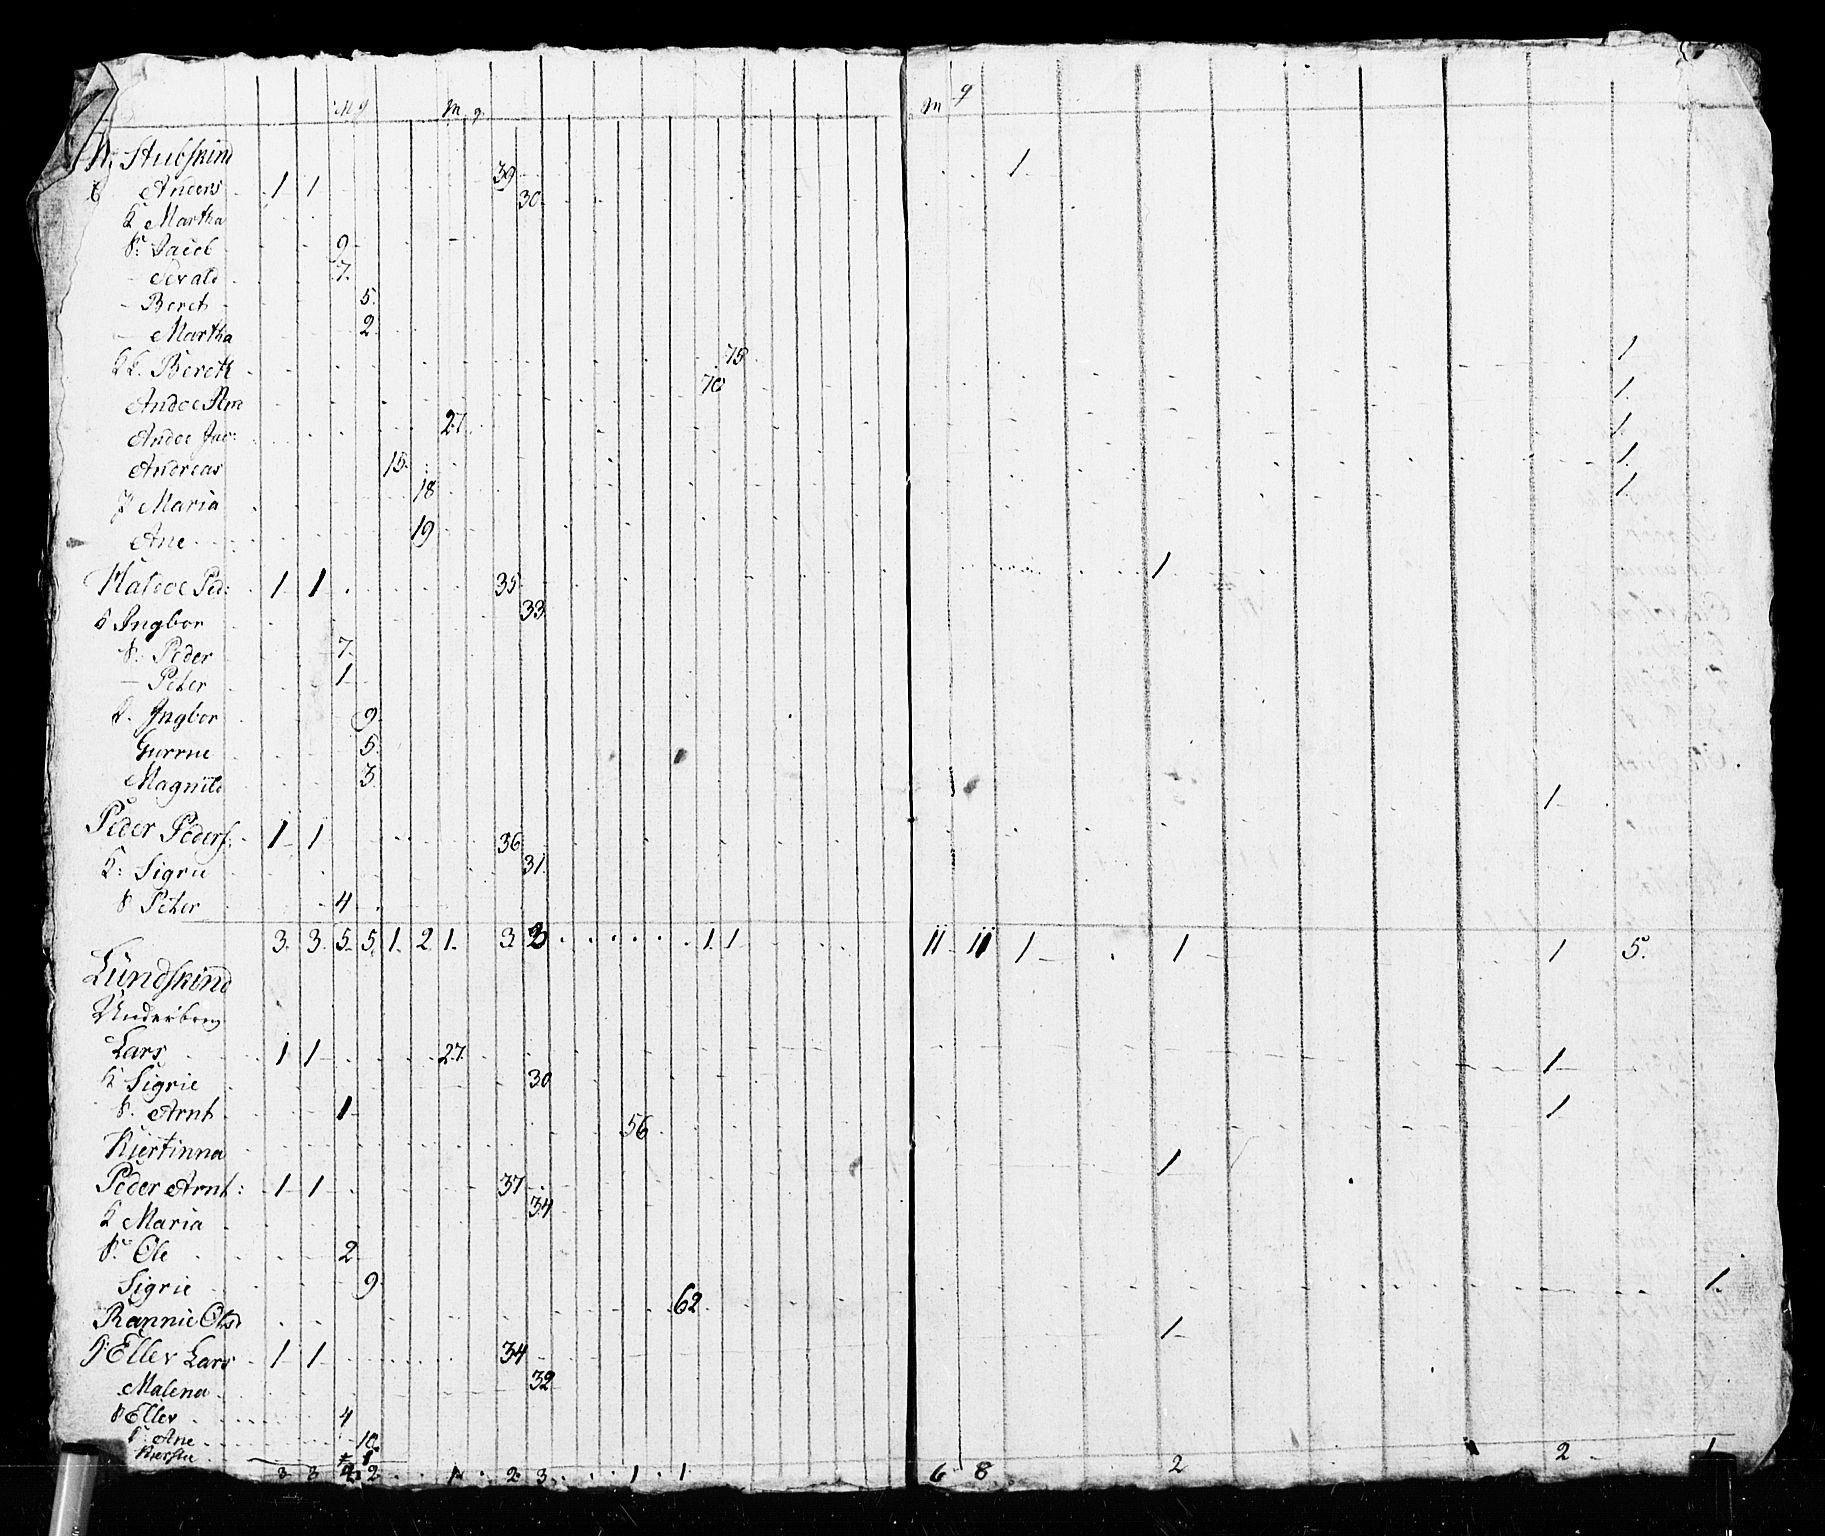 M q M q m q
N: Stubskind 1
Anders 1 1 39
K Martha 30
S: Jacob 9
Sivald 7
- Beret 5
- Martha 2
Bereth 75 1
Andoe 70 1
Andoe Jac: 27 1
Andreas 15 1
P Maria 18 1
Ane 19
Halvoe Ped: 1 1 35 1
K Ingbor 33
S: Peder 7
- Peter 1
Ingbor 9
Gurrue 5
Magnild 3
Peder Peders: 1 1 36 1
K: Sigru 31
S Peter 4
3. 3. 5. 5. 1. 2 1. 3. 3 1 1 11 11 1 1 1 5.
Lundskind
Underbrug
Lars 1 1 27 1
K Sigrie 30
S. Arnt 1 1
Kiertinna 56
Peder Arnt: 1 1 37 1
K Maria 34
S: Ole 2
Sigrie 9
Rannie Olsd 62 1
Eller Lars 1 1 34 1
Malena 32
S Eller 4
Ane 10
Kierstie
3 3 2 2 1 2 3 1 1 6 8 2 2 1